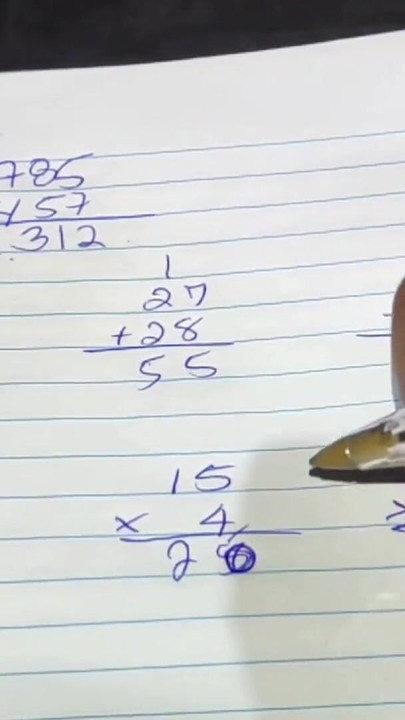 785
157
312
1
27
+28
55
15
× 4
2